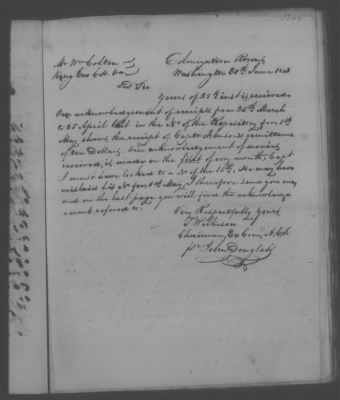 Mr Wm Colton
Colonization Rooms
Washington 28th June
D Sir
Yours of 25th inst is received
Our acknowledgement of receipts from 26th March
to 25 April is in the No of the Repository for 1st
May shows the receipt of Capt remittance
of ten Dollars. Our acknowledgement of moneys
received, is made in the first of every month, Capt
must have looked to a No of the 15th. He may have
mislaid his No for 1st May, I therefore send you one
and on the last page you will find the acknowledge
ment refered to.
Very Respectfully Yours
S Wilkeson
Chairman, Ex Com, A, C, S
pr John Douglass